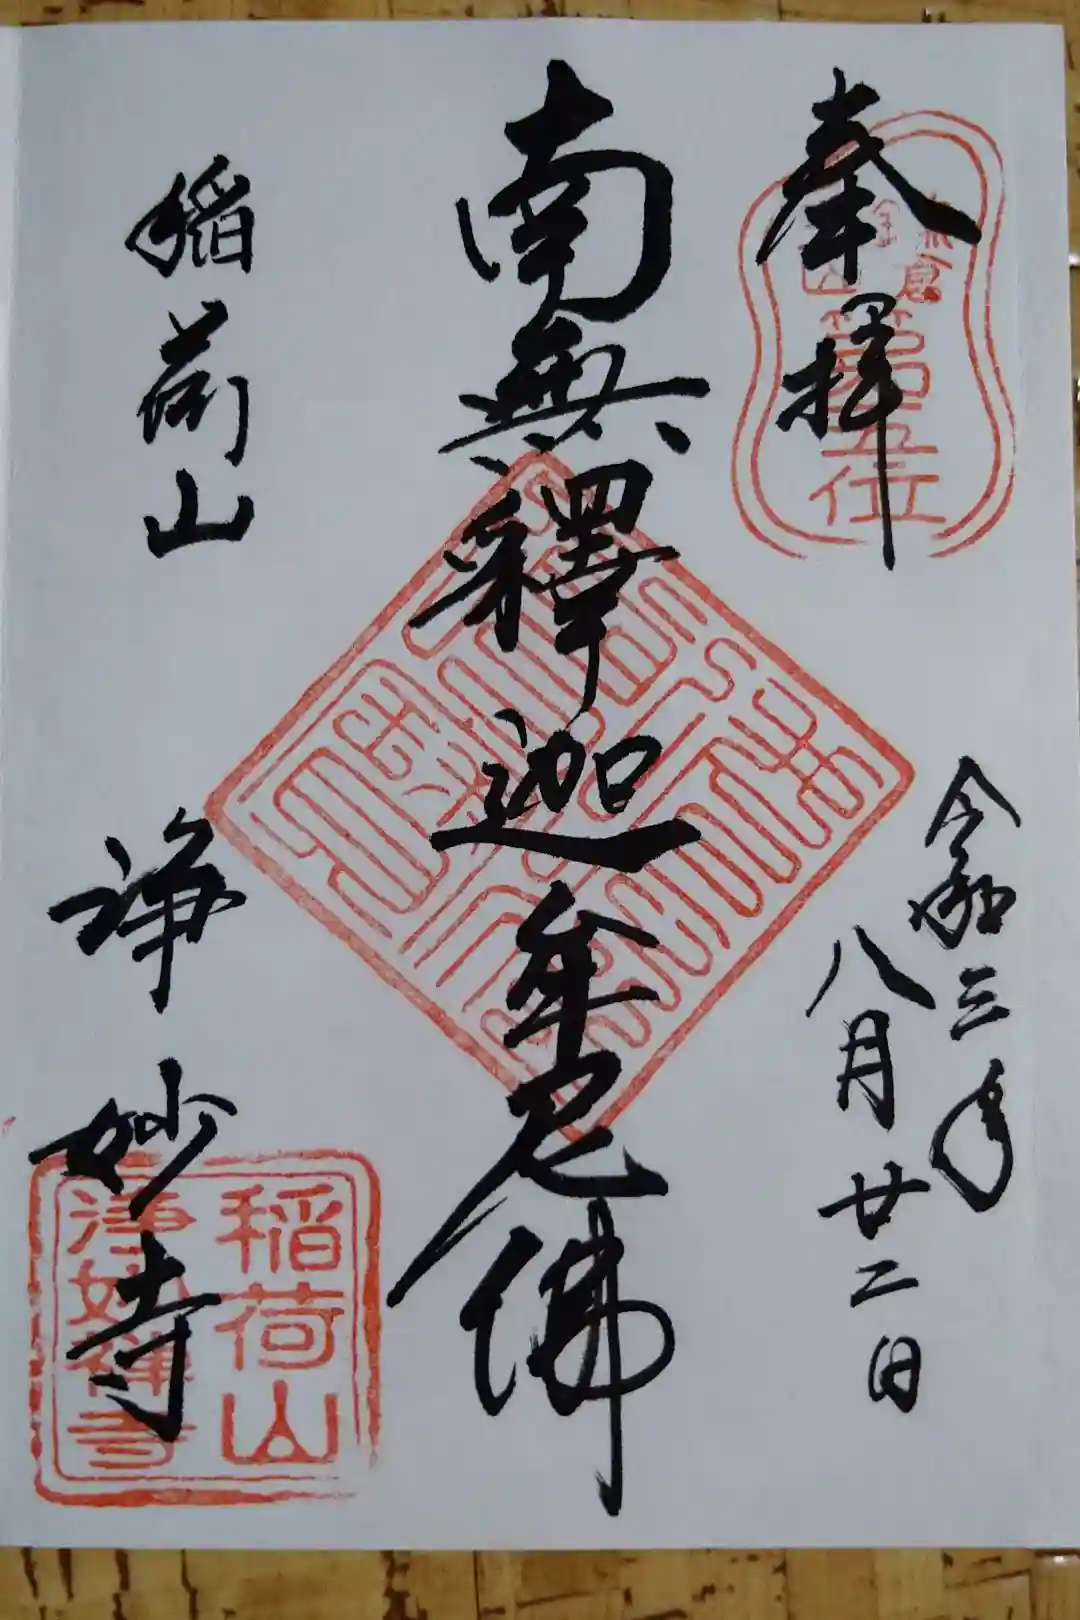 奉拝
鎌倉
五山
第五位
令和三年
八月廿二日
南無釋迦牟尼佛
稲荷山
浄妙寺
稲荷山
浄妙禅寺